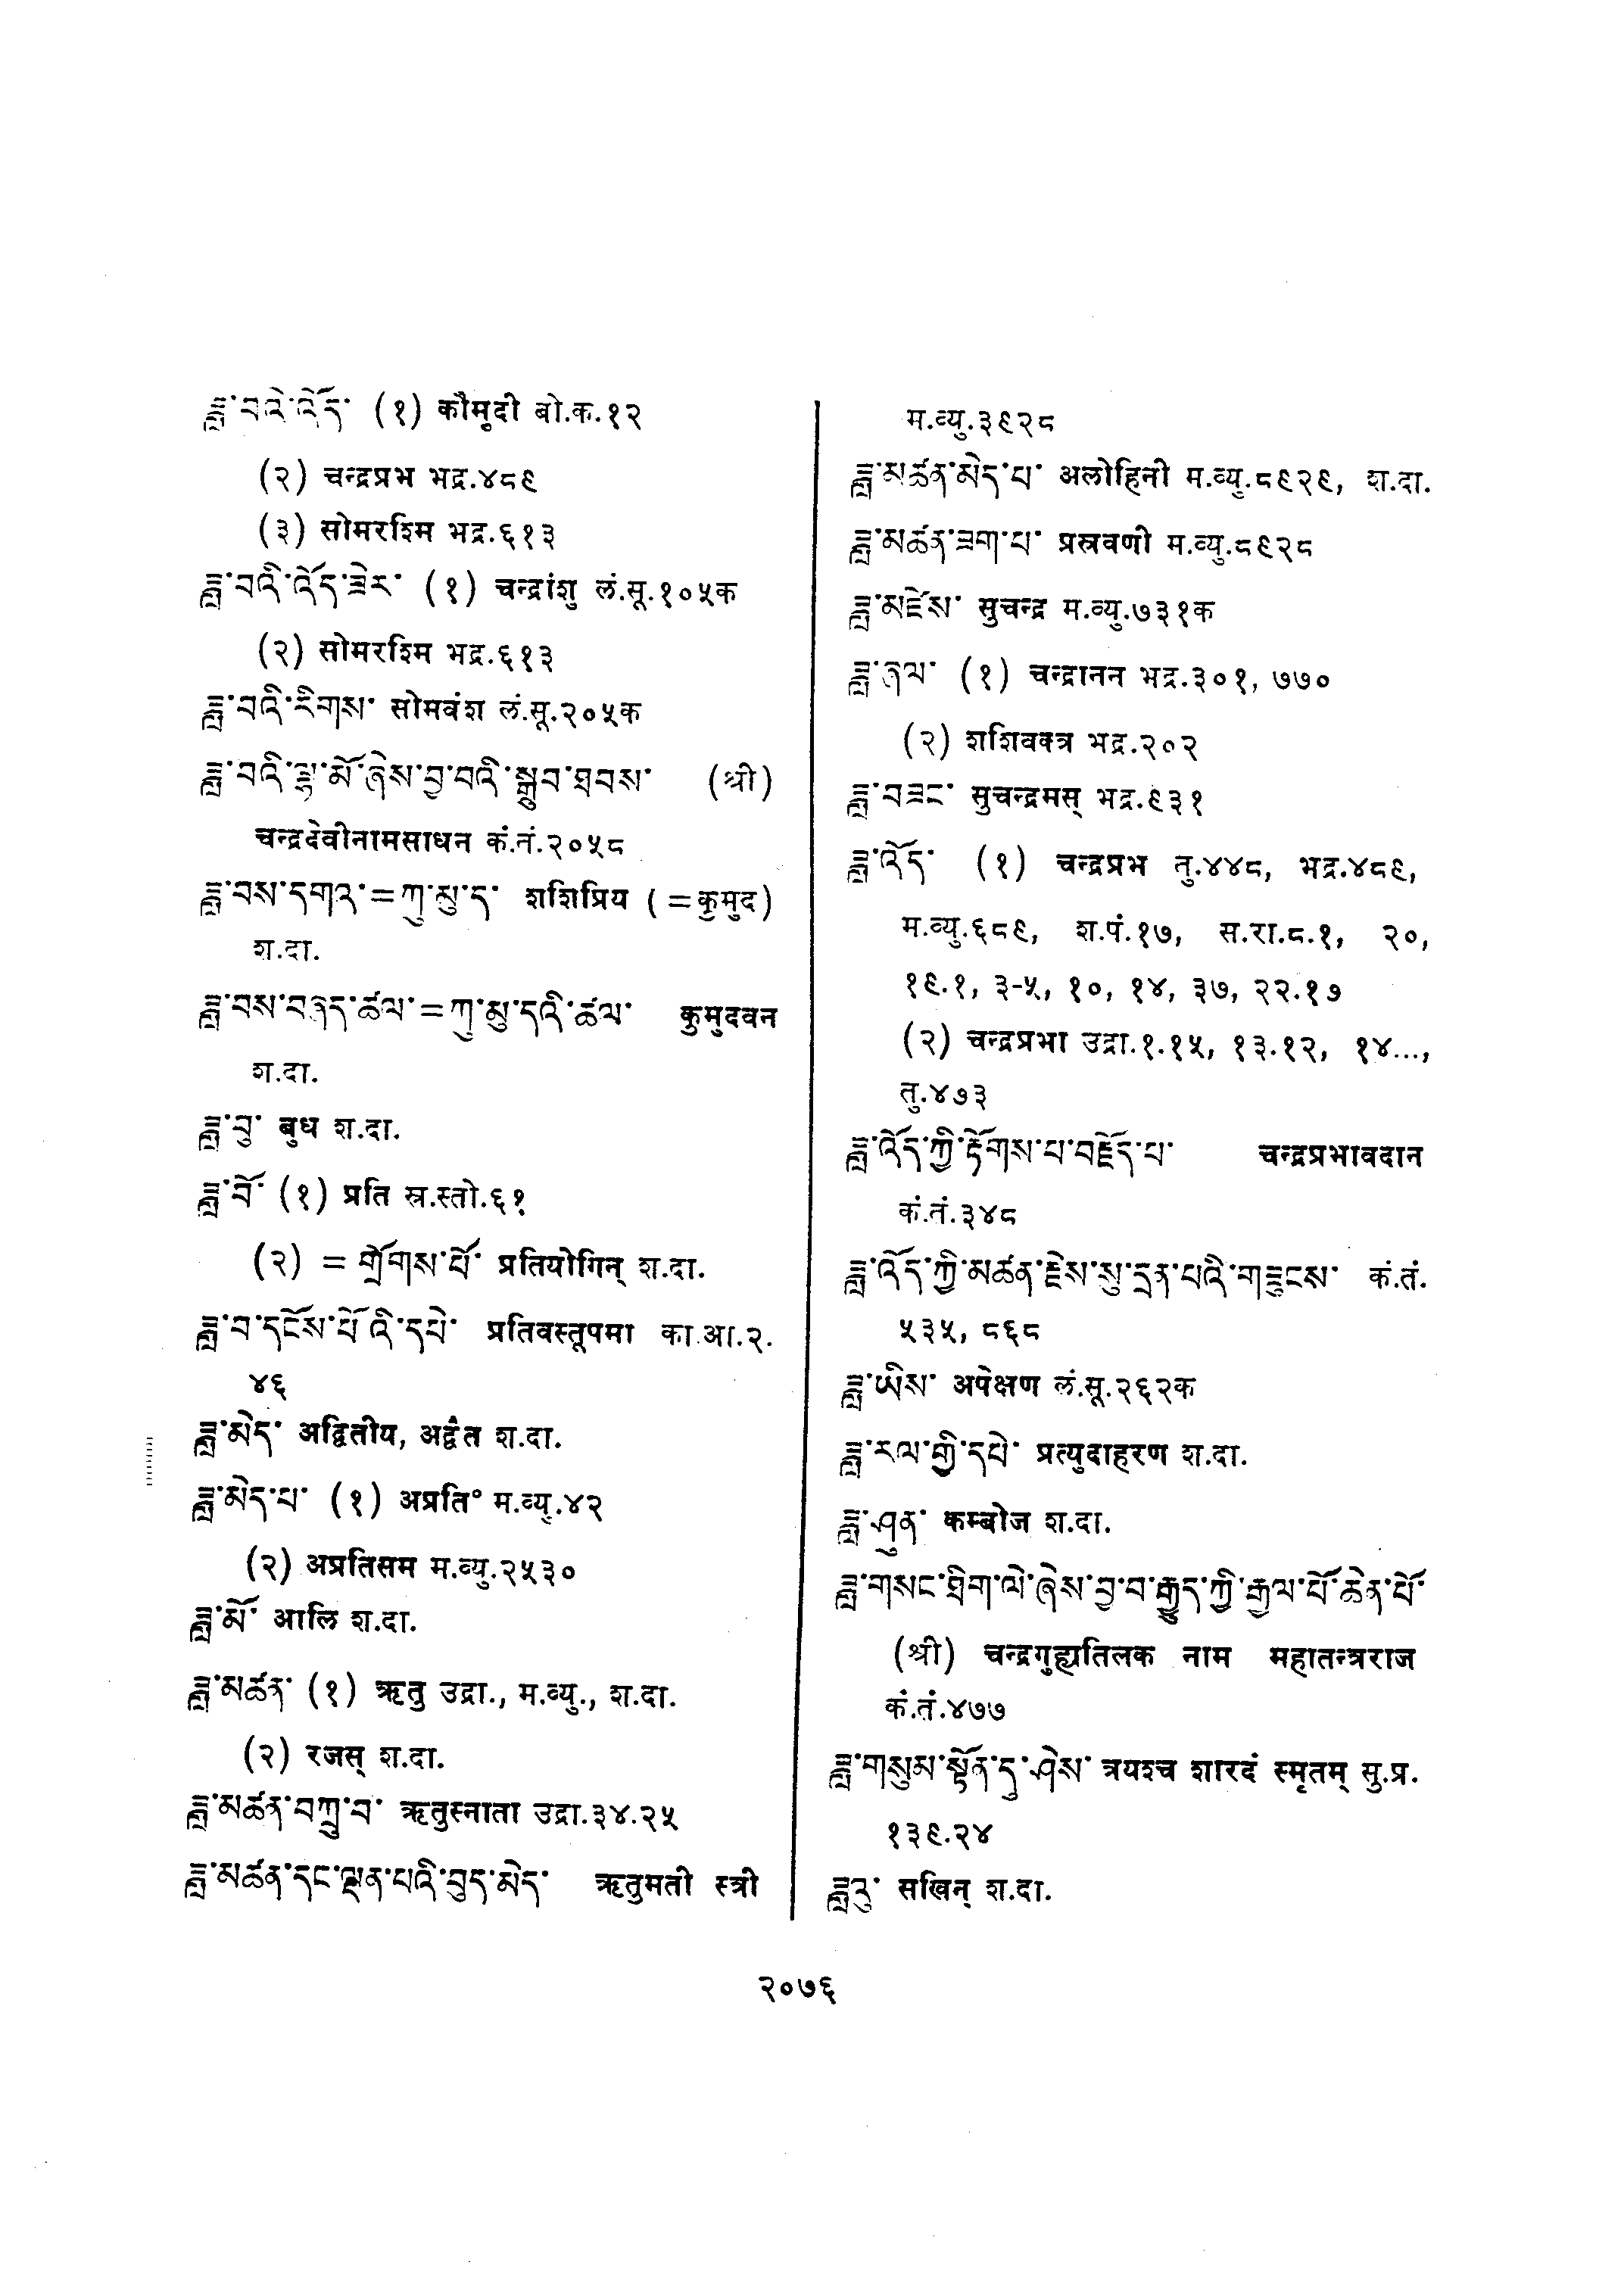 ཟླ་བའི་འོད་ (१) कौमुदी बो.क.१२
(२) चन्द्रप्रभ भद्र.४८९
(३) सोमरश्मि भद्र.६१३
ཟླ་བའི་འོད་ཟེར་ (१) चन्द्रांशु लं.सू.१०५क
(२) सोमरश्मि भद्र.६१३
ཟླ་བའི་རིགས་ सोमवंश लं.सू.२०५क
ཟླ་བའི་ལྷ་མོ་ཞེས་བྱ་བའི་སྒྲུབ་ཐབས་ (श्री)
चन्द्रदेवीनामसाधन कं.तं.२०५८
ཟླ་བས་དགའ་=ཀུ་མུ་ད་ शशिप्रिय (=कुमुद)
श.दा.
ཟླ་བས་བཉད་ཚལ་=ཀུ་མུ་དའི་ཚལ་ कुमुदवन
श.दा.
ཟླ་བུ་ बुध श.दा.
ཟླ་བོ་ (१) प्रति स्र.स्तो.६१
(२) = གྲོགས་པོ་ प्रतियोगिन् श.दा.
ཟླ་བ་དངོས་པོ་འི་དཔེ་ प्रतिवस्तूपमा का.आ.२.
४६
ཟླ་མེད་ अद्वितीय, अद्वैत श.दा.
ཟླ་མེད་པ་ (१) अप्रति° म.व्यु.४२
(२) अप्रतिसम म.व्यु.२५३०
ཟླ་མོ་ आलि श.दा.
ཟླ་མཚན་ (१) ऋतु उद्रा., म.व्यु., श.दा.
(२) रजस् श.दा.
ཟླ་མཚན་བཀྲུ་བ་ ऋतुस्नाता उद्रा.३४.२५
ཟླ་མཚན་དང་ལྡན་པའི་བུད་མེད་ ऋतुमती स्त्री
म.व्यु.३९२८
ཟླ་མཚན་མེད་པ་ अलोहिनी म.व्यु.८९२९, श.दा.
ཟླ་མཚན་ཟག་པ་ प्रस्रवणी म.व्यु.८९२८
ཟླ་མཛེས་ सुचन्द्र म.व्यु.७३१क
ཟླ་ཞལ་ (१) चन्द्रानन भद्र.३०१, ७७०
(२) शशिवक्त्र भद्र.२०२
ཟླ་བཟང་ सुचन्द्रमस् भद्र.९३१
ཟླ་འོད་ (१) चन्द्रप्रभ तु.४४८, भद्र.४८९,
म.व्यु.६८९, श.पं.१७, स.रा.८.१, २०,
१९.१, ३-५, १०, १४, ३७, २२.१७
(२) चन्द्रप्रभा उद्रा.१.१५, १३.१२, १४...,
तु.४७३
ཟླ་འོད་ཀྱི་རྟོགས་པ་བརྗོད་པ་ चन्द्रप्रभावदान
कं.तं.३४८
ཟླ་འོད་ཀྱི་མཚན་རྗེས་སུ་དྲན་པའི་གཟུངས་ कं.तं.
५३५, ८६८
ཟླ་ཡིས་ अपेक्षण लं.सू.२६२क
ཟླ་རལ་གྱི་དཔེ་ प्रत्युदाहरण श.दा.
ཟླ་ཤུན་ कम्बोज श.दा.
ཟླ་གསང་ཐིག་ལེ་ཞེས་བྱ་བ་རྒྱུད་ཀྱི་རྒྱལ་པོ་ཆེན་པོ་
(श्री) चन्द्रगुह्यतिलक नाम महातन्त्रराज
कं.तं.४७७
ཟླ་གསུམ་སྟོན་དུ་ཤེས་ त्रयश्च शारदं स्मृतम् सु.प्र.
१३९.२४
ཟླའུ་ सखिन् श.दा.
२०७६